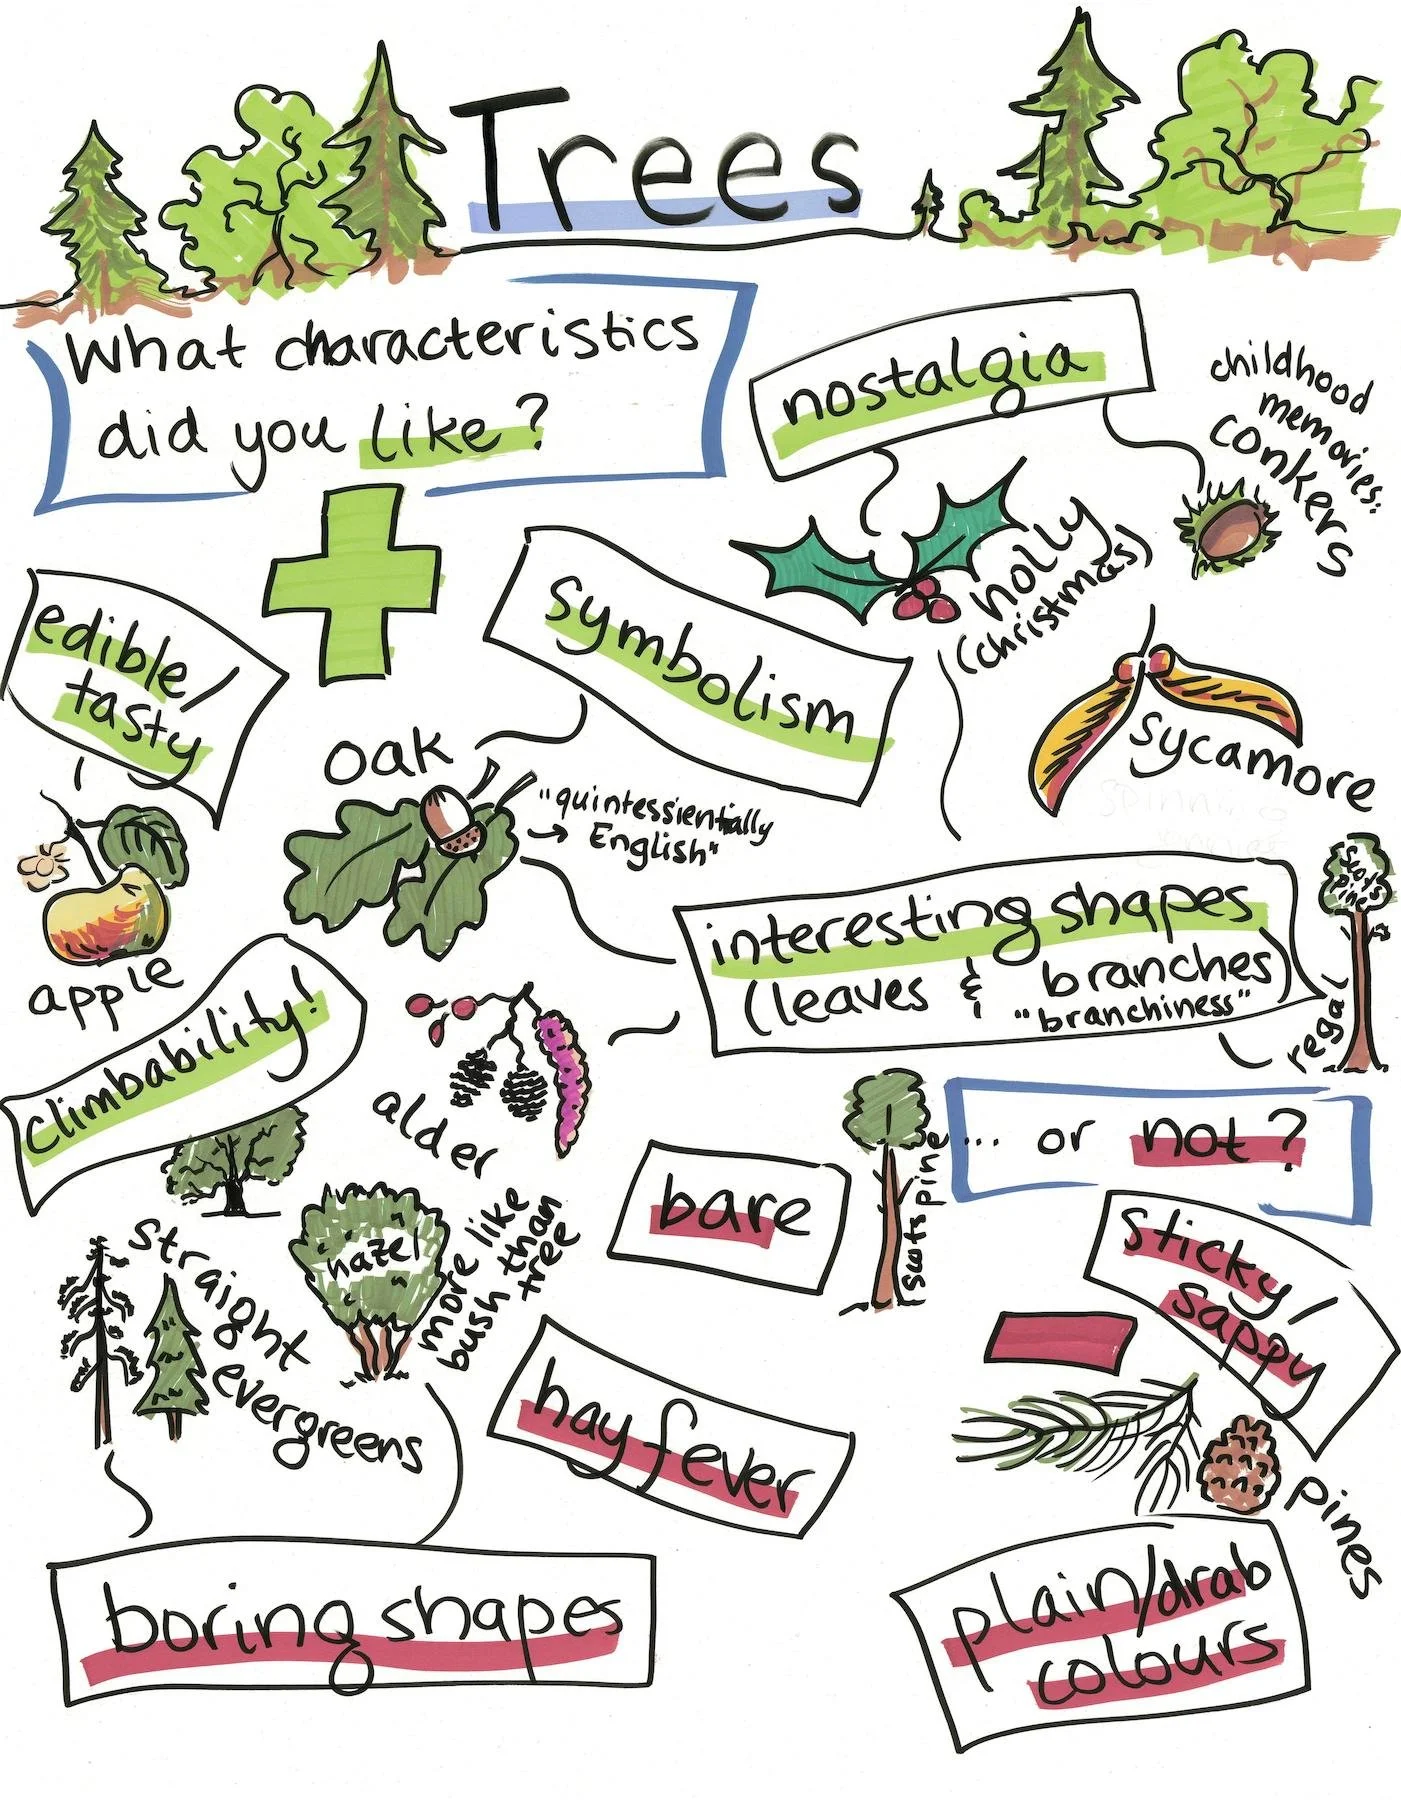 Trees
What characteristics
did you like?
nostalgia
childhood
memories:
conkers
holly
(christmas)
symbolism
edible/
tasty
oak
"quintessientially
English"
sycamore
apple
interesting shapes
(leaves & branches)
"branchiness"
scots
pine
regal
climbability!
alder
... or not?
bare
scots pine
sticky/
sappy
hazel
more like
bush than
tree
straight
evergreens
hayfever
pines
boring shapes
plain/drab
colours